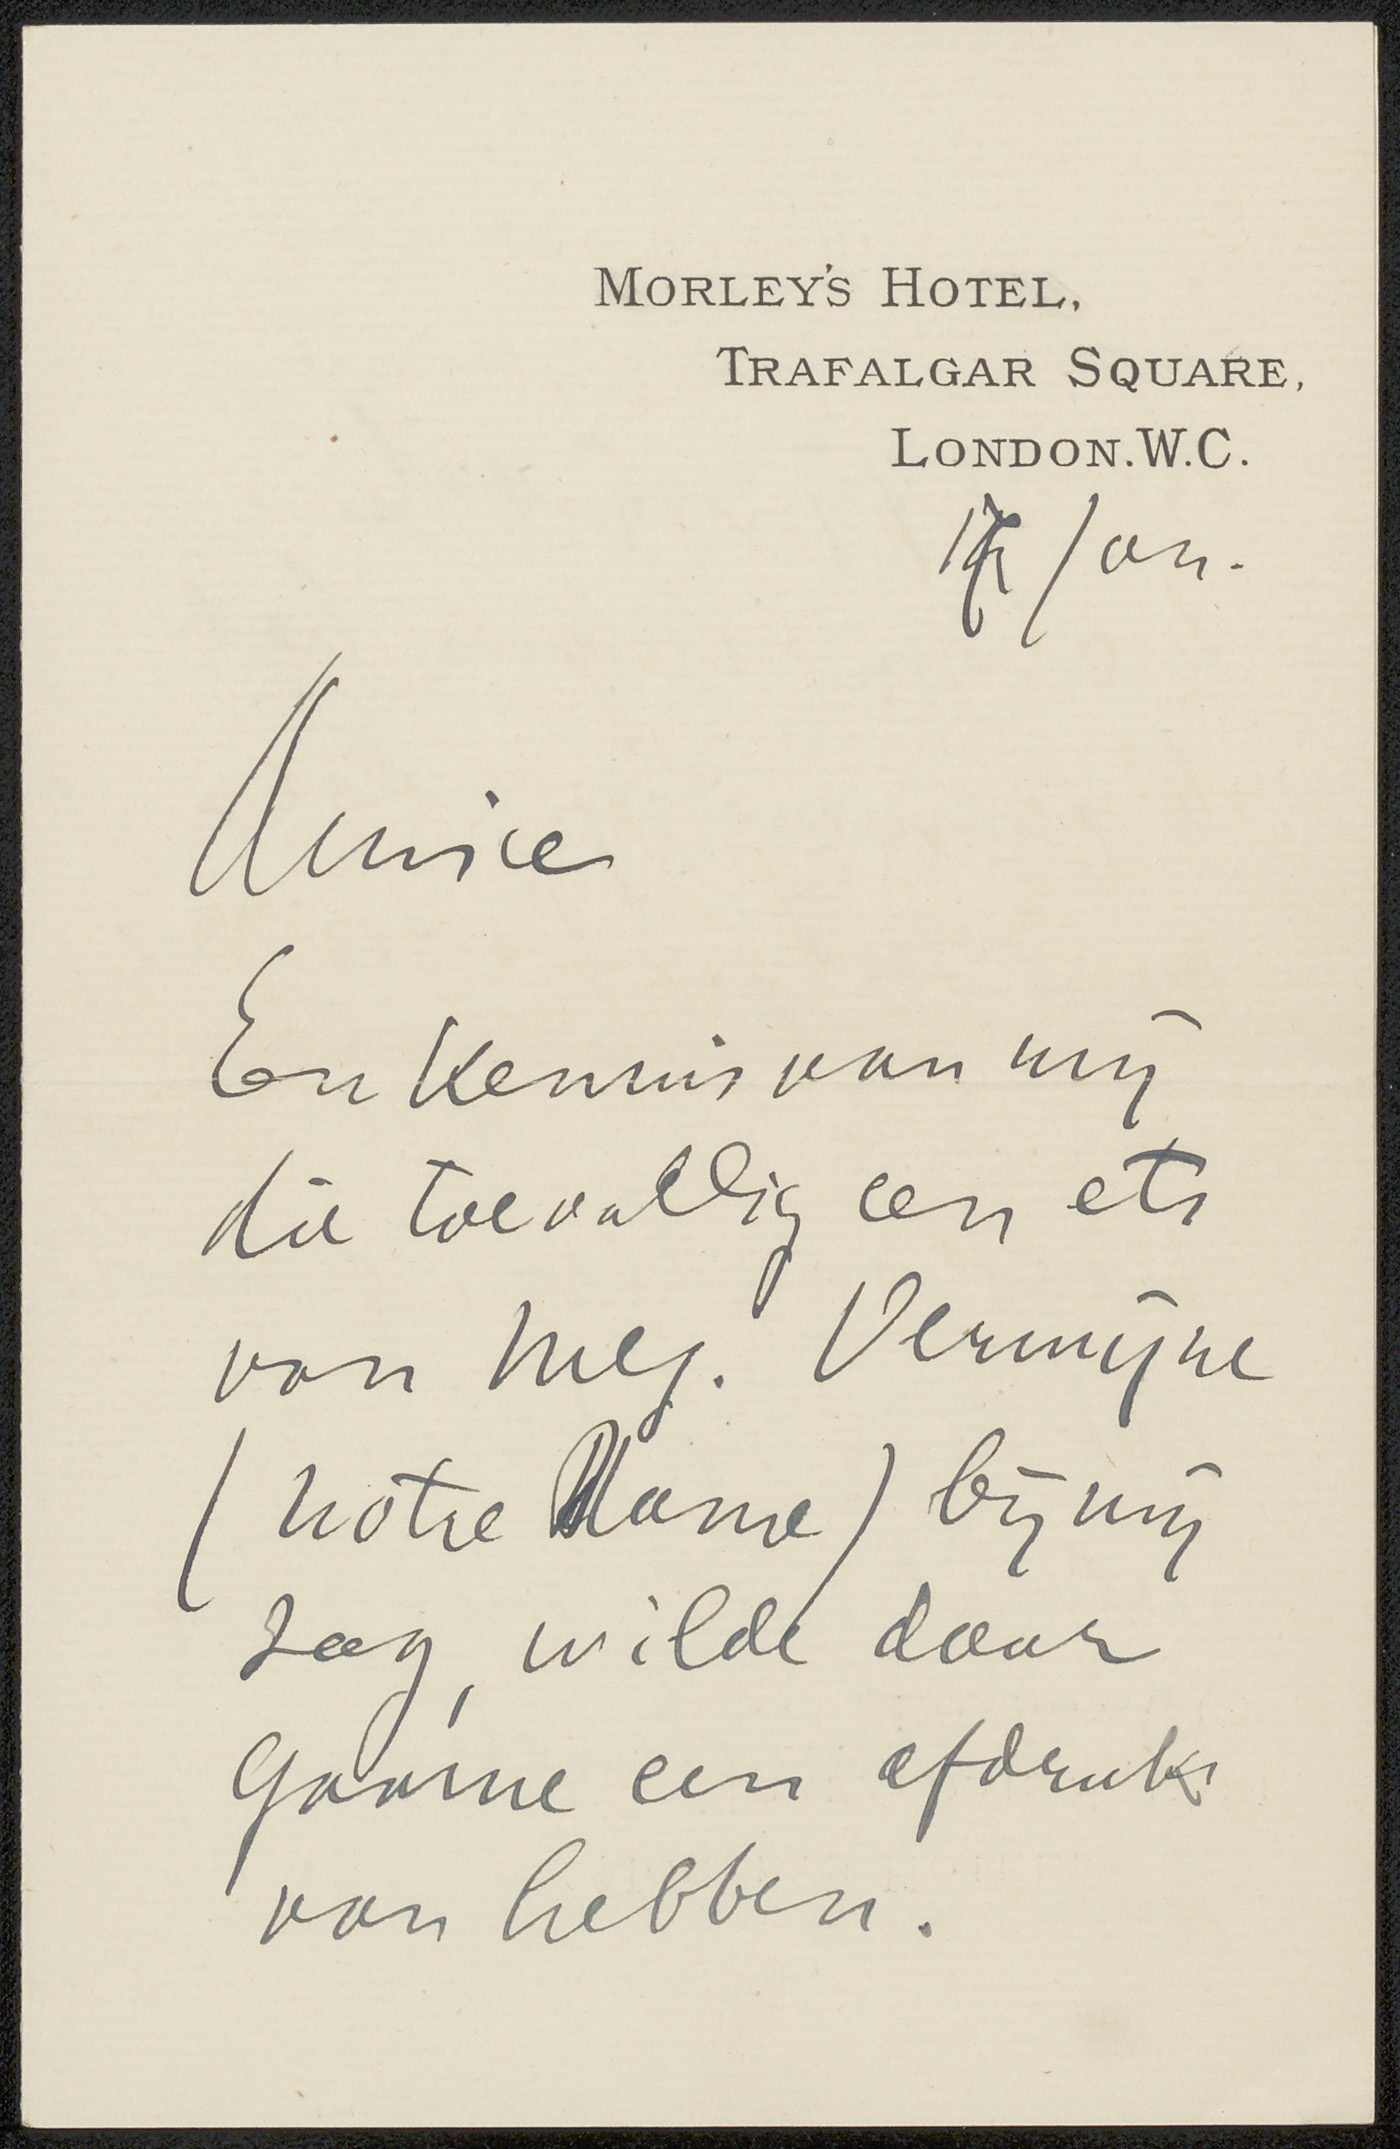 MORLEY'S HOTEL,
TRAFALGAR SQUARE,
LONDON. W.C.
Jan.
Amice
Een Kennis van mij
die toevallig een ets
van Mej. Vermijne
(Notre Dame) bij mij
zag, wilde daar
gaarne een afdruk
van hebben.